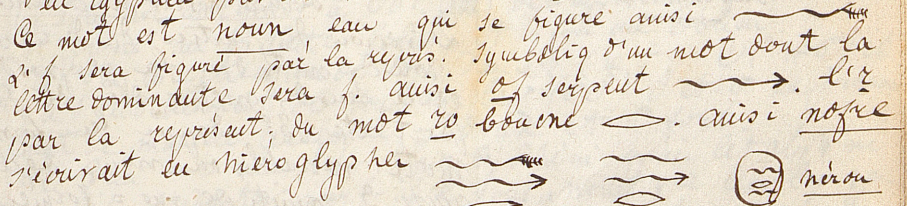 Ce mot est noun eau qui se figure ainsi
L'f sera figuré par la représ. symboliq d'un mot dont la
lettre dominante sera f. ainsi of serpent . l'r
par la représent. du mot ro bouche . ainsi nofre
s'écrivait en hiéroglyphes
nérou